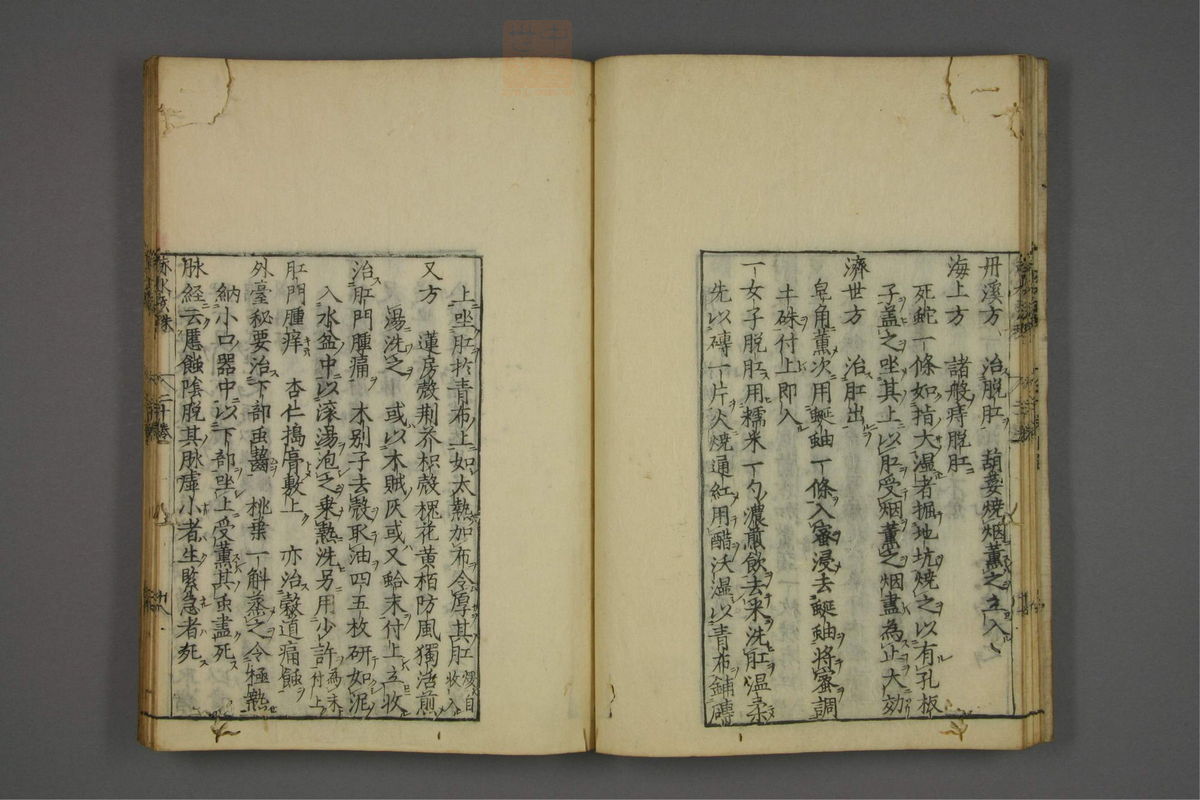 丹溪方 治脱肛 葫荽焼烟薫之立入
海上方 諸般痔脱肛
死蛇一條如指大湿者掘地坑焼之以有孔板
子盖之坐其上以肛受烟薫之烟盡為止大効
濟世方 治肛出
皂角薫次用蜒蚰一條入蜜浸去蜒蚰将蜜調
土硃付上即入
一女子脱肛用糯米一勺濃煎飲去米洗肛温柔
先以磚一片火焼通紅用醋沃湿以青布鋪磚
上坐肛於青布上如大熱加布令厚其肛自收入
又方 蓮房殻荆芥枳殻槐花黄栢防風獨活煎
湯洗之 或以木賊灰或又蛤末付上立收
治肛門腫痛 木別子去殻取油四五枚研如泥
入水盆中以滚湯泡之乗熱洗另用少許為末付上
肛門腫痒 杏仁搗膏敷上 亦治穀道痛蝕
外臺秘要治下部虫䘌 桃葉一斛蒸之令極熱
納小口器中以下部坐上受薫其虫盡死
脉経云䘌蝕陰脱其脉虚小者生緊急者死